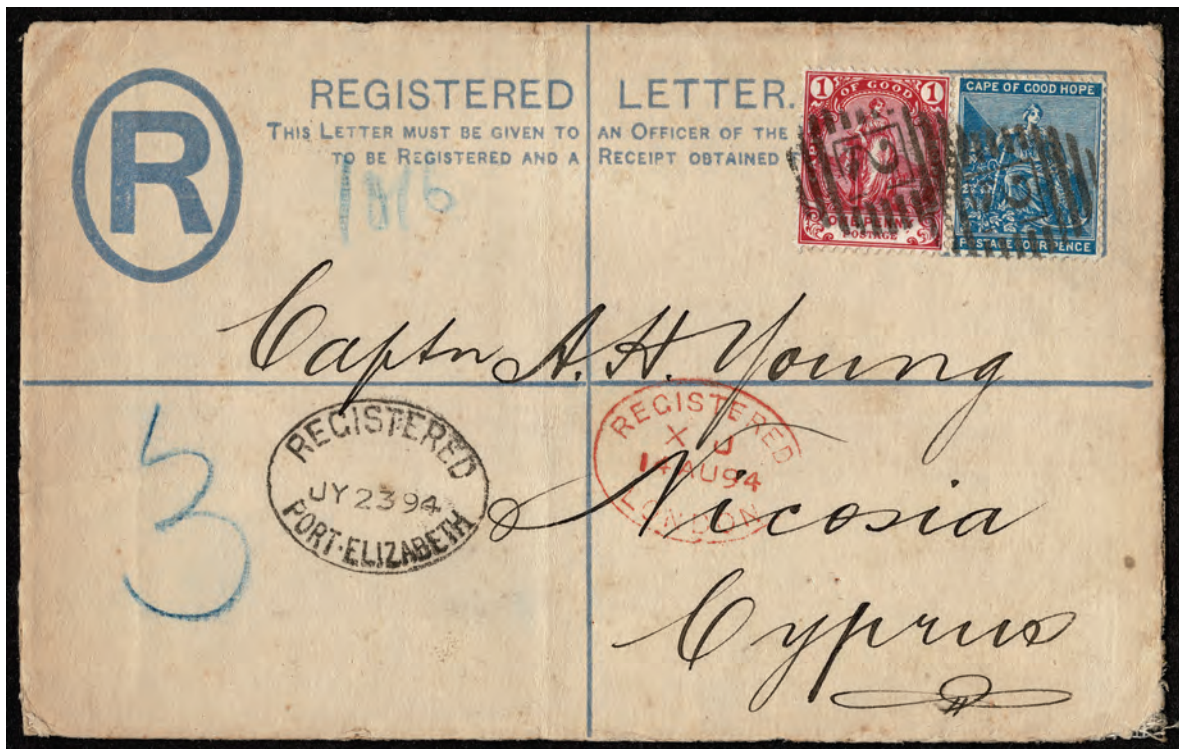 R
REGISTERED LETTER.
THIS LETTER MUST BE GIVEN TO AN OFFICER OF THE
TO BE REGISTERED AND A RECEIPT OBTAINED
1 OF GOOD 1
POSTAGE
CAPE OF GOOD HOPE
POSTAGE FOUR PENCE
Captn A. H. Young
Nicosia
Cyprus
3
REGISTERED
JY 23 94
PORT-ELIZABETH
REGISTERED
X J
14 AU 94
LONDON